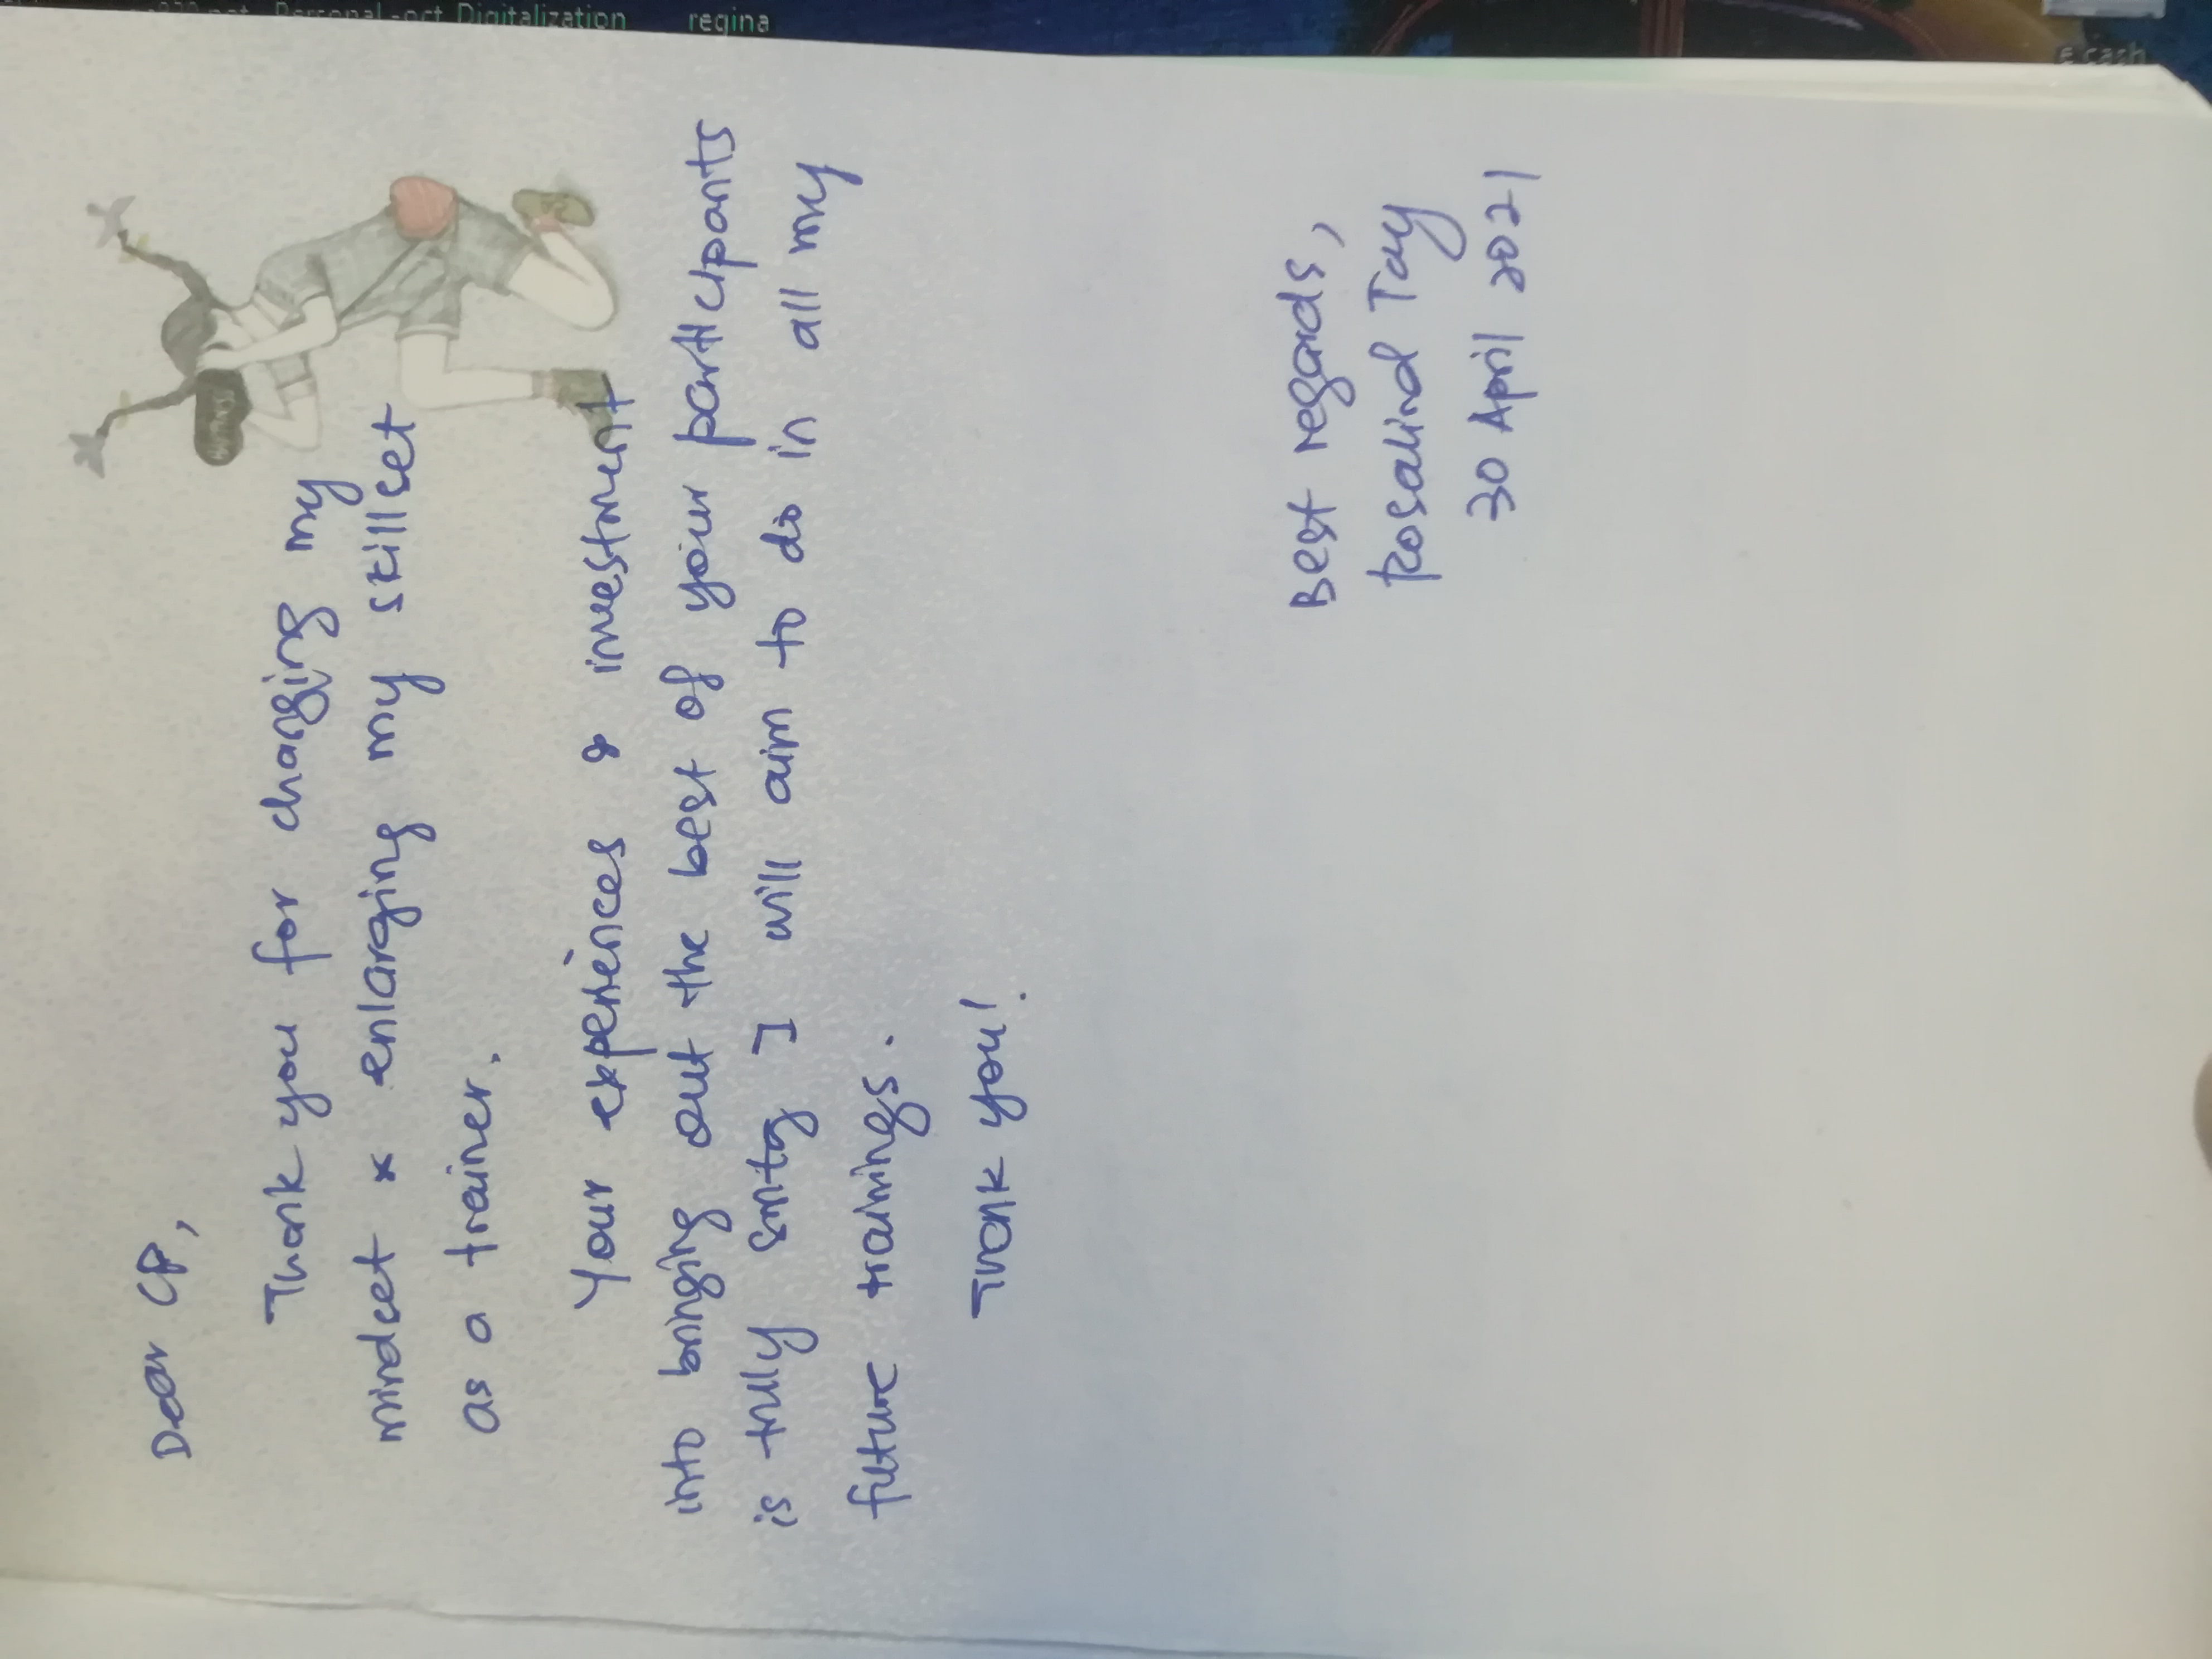 Digitalization regina
e.cash
Dear CP,
Thank you for changing my
mindset & enlarging my skillset
as a trainer.
Your experiences & investment
into bringing out the best of your participants
is truly I will aim to do in all my
future trainings.
Thank you!
Best regards,
Rosalind Tay
30 April 2021